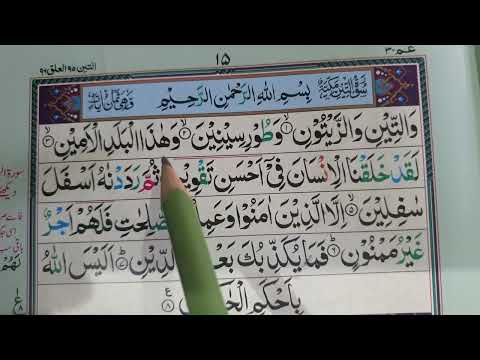 عم ٣٠
١٥
التين ٩٥ العلق ٩٦
سورة التين مكية
بِسْمِ اللهِ الرَّحْمٰنِ الرَّحِيْمِ
وَالتِّيْنِ وَالزَّيْتُوْنِ ۙ﴿۱﴾ وَطُوْرِ سِيْنِيْنَ ۙ﴿۲﴾ وَهٰذَا الْبَلَدِ الْاَمِيْنِ ۙ﴿۳﴾
لَقَدْ خَلَقْنَا الْاِنْسَانَ فِيْٓ اَحْسَنِ تَقْوِيْمٍ ثُمَّ رَدَدْنٰهُ اَسْفَلَ
سٰفِلِيْنَ ۙ﴿۵﴾ اِلَّا الَّذِيْنَ اٰمَنُوْا وَعَمِلُوا الصّٰلِحٰتِ فَلَهُمْ اَجْرٌ
غَيْرُ مَمْنُوْنٍ ؕ﴿۶﴾ فَمَا يُكَذِّبُكَ بَعْدُ بِالدِّيْنِ ؕ﴿۷﴾ اَلَيْسَ اللهُ
بِاَحْكَمِ ﴿۸﴾